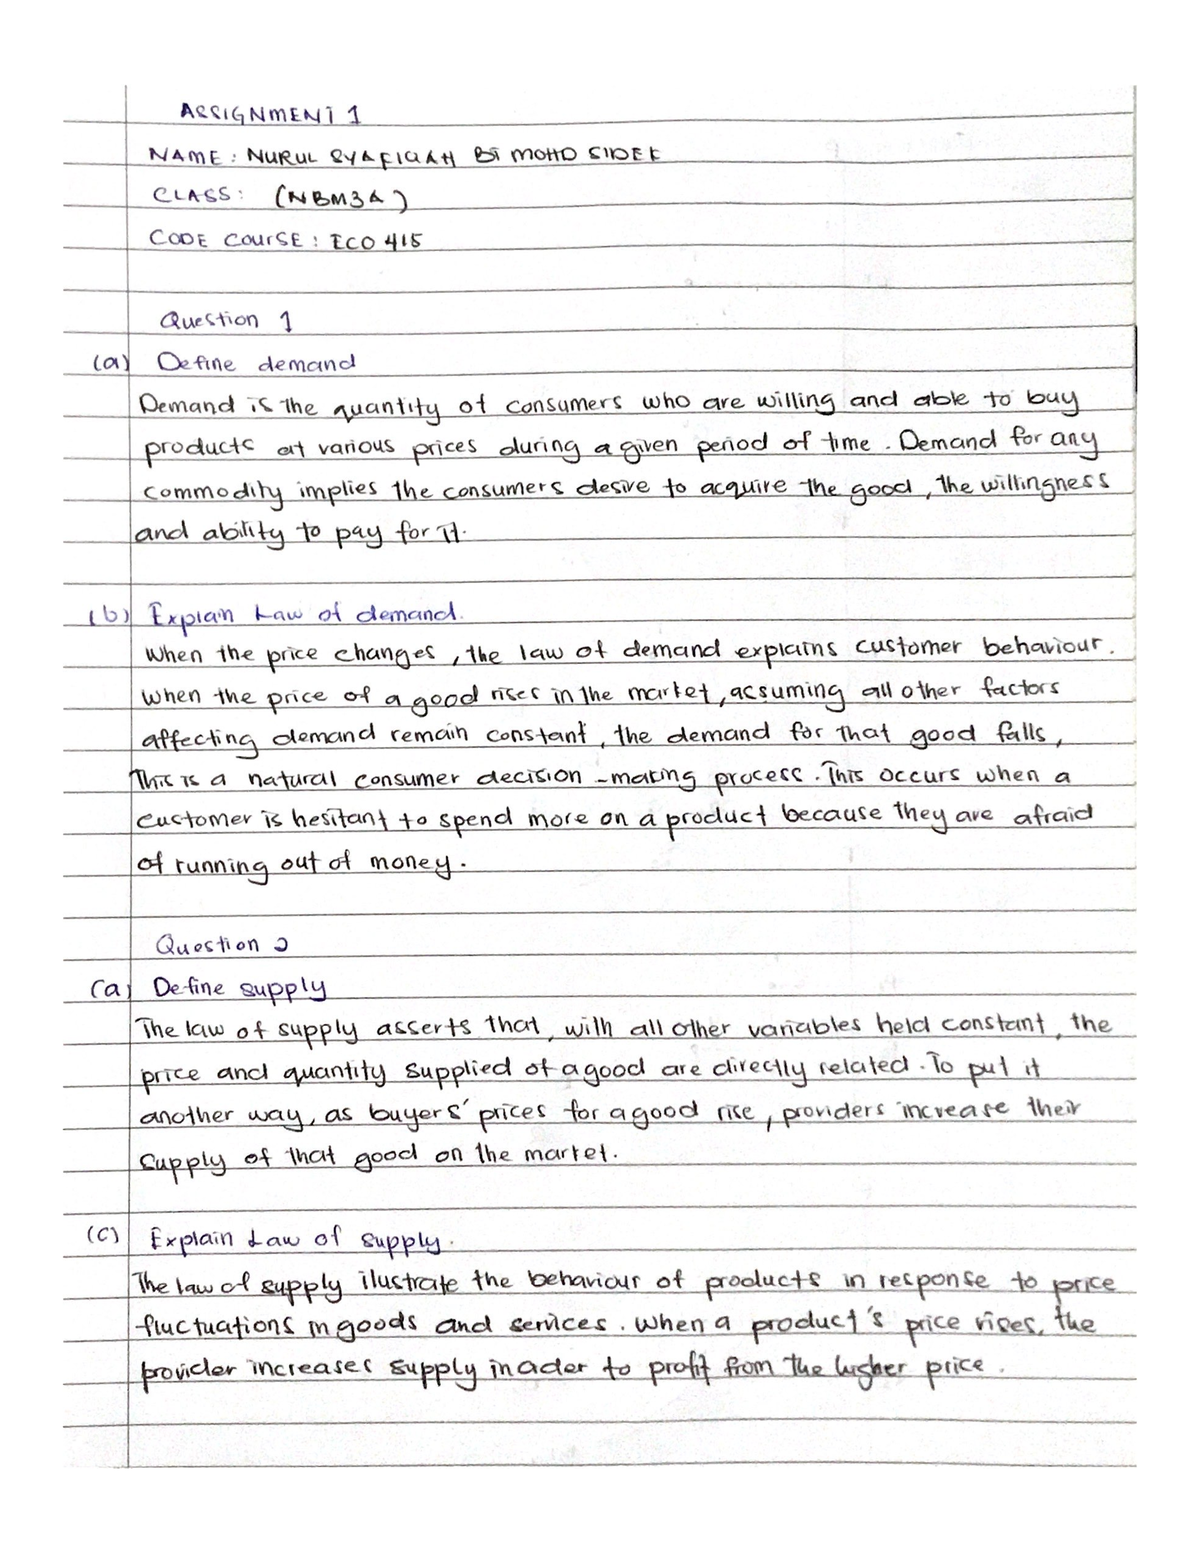 ASSIGNMENT 1
NAME : NURUL SYAFIQAH BT MOHD SIDEK
CLASS : (NBM3A)
CODE COURSE : ECO 415
Question 1
(a) Define demand
Demand is the quantity of consumers who are willing and able to buy
products at various prices during a given period of time. Demand for any
commodity implies the consumers desire to acquire the good, the willingness
and ability to pay for it.
(b) Explain Law of demand.
When the price changes, the law of demand explains customer behaviour.
When the price of a good rises in the market, assuming all other factors
affecting demand remain constant, the demand for that good falls,
This is a natural consumer decision-making process. This occurs when a
customer is hesitant to spend more on a product because they are afraid
of running out of money.
Question 2
(a) Define supply
The law of supply asserts that, with all other variables held constant, the
price and quantity supplied of a good are directly related. To put it
another way, as buyers' prices for a good rise, providers increase their
supply of that good on the market.
(c) Explain Law of supply.
The law of supply ilustrate the behaviour of products in response to price
fluctuations in goods and services. When a product's price rises, the
provider increases supply in ader to profit from the higher price.